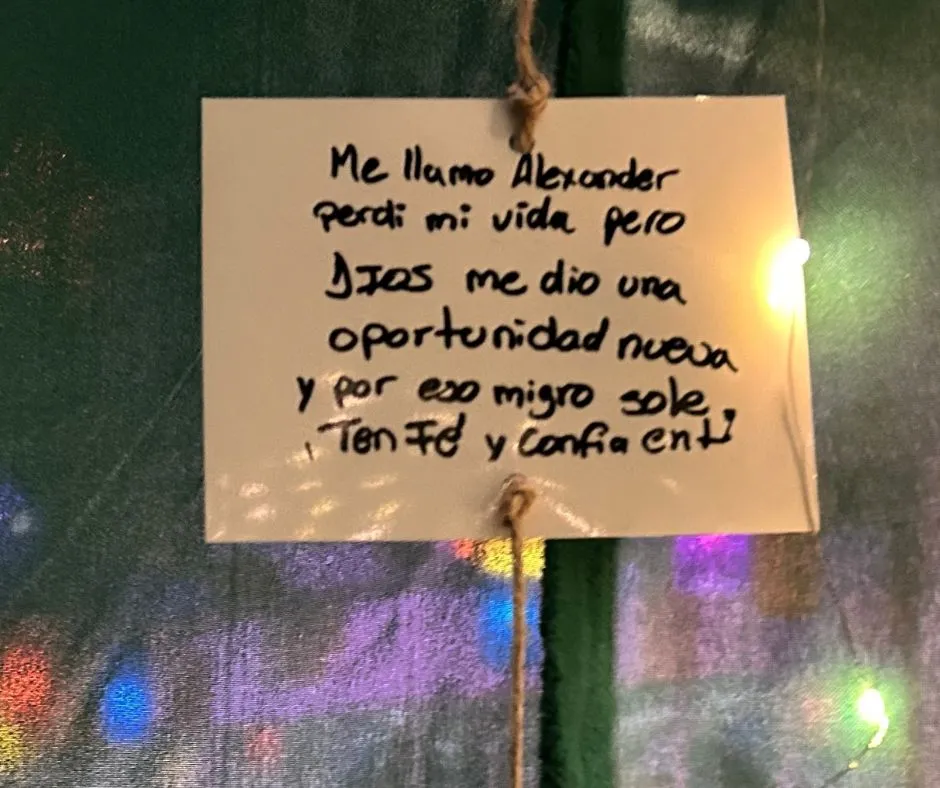 Me llamo Alexander
perdi mi vida pero
DIOS me dio una
oportunidad nueva
y por eso migro sole,
¡Ten Fé y Confia en ti!